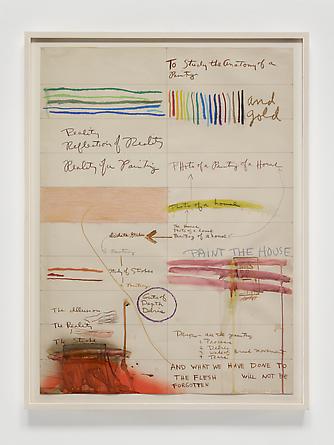 To Study the Anatomy of a
Painting
and
gold
Reality
Reflection of Reality
Reality of a Painting
Photo of a Painting of a House
Photo of a house
The House
Photo of a house
Painting of a house
PAINT THE HOUSE
Study of Strokes
Painting
Gate of
Depth
Debris
The illusion
The Reality
The Stroke
1 Process
2 Debris
AND WHAT WE HAVE DONE TO
THE FLESH WILL NOT BE
FORGOTTEN